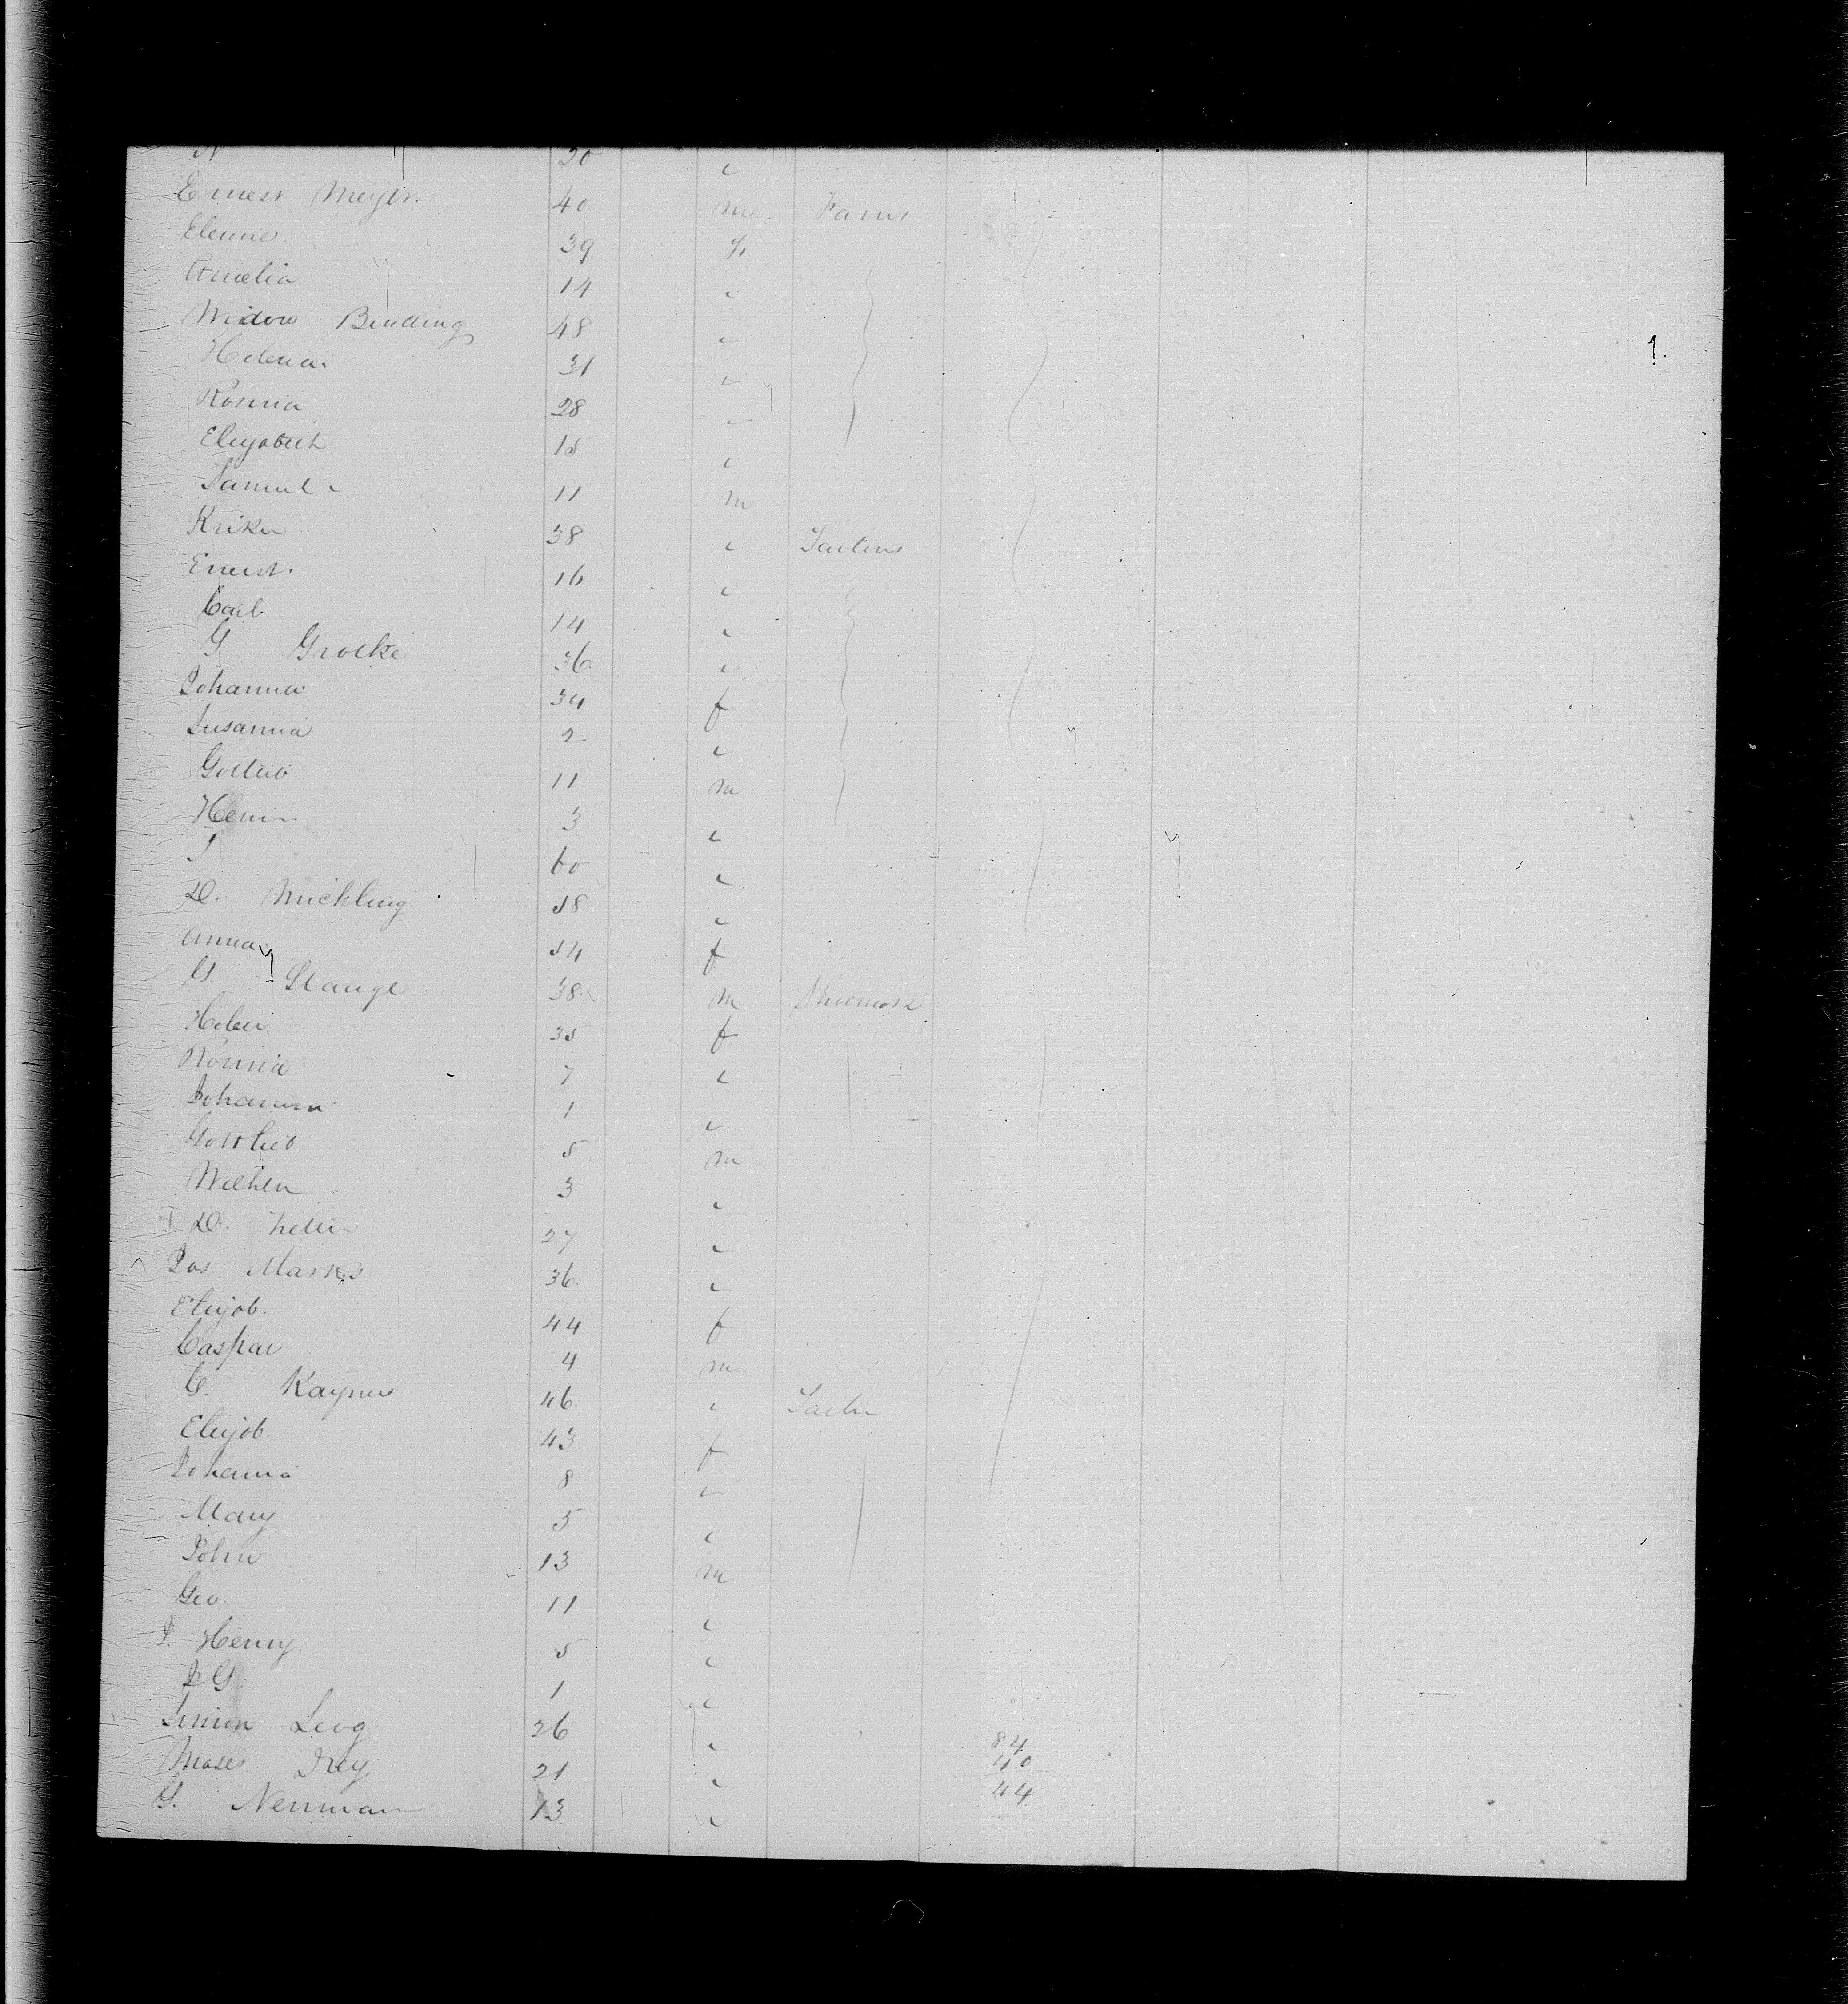 N 20 "
Ernest Meyer. 40 m. Farms
Elenne. 39 f.
Amelia 14 "
Widow Binding 48 "
Helena. 31 "
Rosina 28 "
Elizabeth 15 "
Samuel 11 m
Kriker 38 "
Ernest. 16 "
Carl 14 "
G Groeke 36. "
Johanna 34 f
Susanna 2 "
Gotleib 11 m
Henr 3 "
J 60 "
D. Mickling 18 "
Anna 14 f
G. Stange 38. m Shoemak
Helen 35 f
Rosina 7 "
Johanna 1 "
Gottlieb 5 m
Wilhem 3 "
D. 27 "
Jos. Marks 36. "
Elizab. 44 f
Caspar 4 m
C. Kayner 46. "
Elizab. 43 f
Johanna 8 "
Mary 5 "
John 13 m
Geo. 11 "
J. Henry. 5 "
J G. 1 "
Simon Levy 26 "
Moses 21 "
G. Neuman 13 "
84
40
44